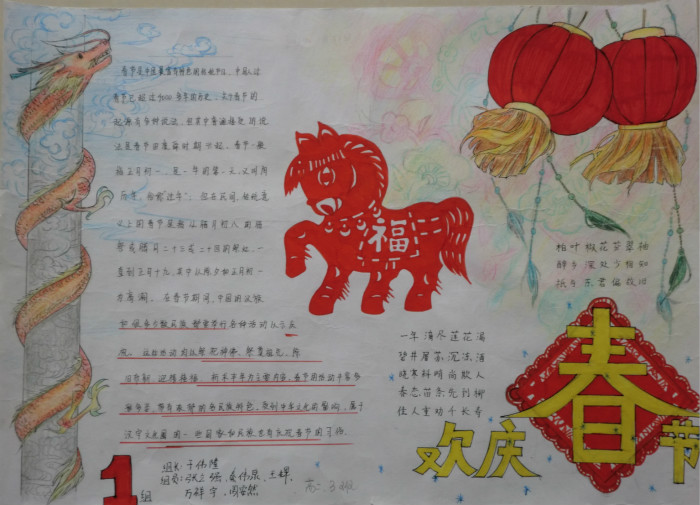 春节是中国最富有特色的传统节日，中国人过
春节已超过4000多年的历史，关于春节的
起源有多种说法，但其中普遍接受的说
法是春节由虞舜时期兴起。春节一般
指正月初一，是一年的第一天，又叫阴
历年，俗称"过年"；但在民间，传统意
义上的春节是指从腊月初八的腊
祭或腊月二十三或二十四的祭灶，一
直到正月十九，其中以除夕和正月初一
为高潮。在春节期间，中国的汉族
和很多少数民族都要举行各种活动以示庆
祝。这些活动均以祭祀神佛、祭奠祖先、除
旧布新、迎禧接福、祈求丰年为主要内容。春节的活动丰富多
彩，带有浓郁的各民族特色。受到中华文化的影响，属于
汉字文化圈的一些国家和民族也有庆祝春节的习俗。
福
柏叶椒花芬翠袖
醉乡深处少相知
祇与东君偏故旧
一年滴尽莲花漏
碧井屠苏沉冻酒
晓寒料峭尚欺人
春态苗条先到柳
佳人重劝千长寿
欢庆春节
1组
组长：于伟隆
组员：
万祥宇